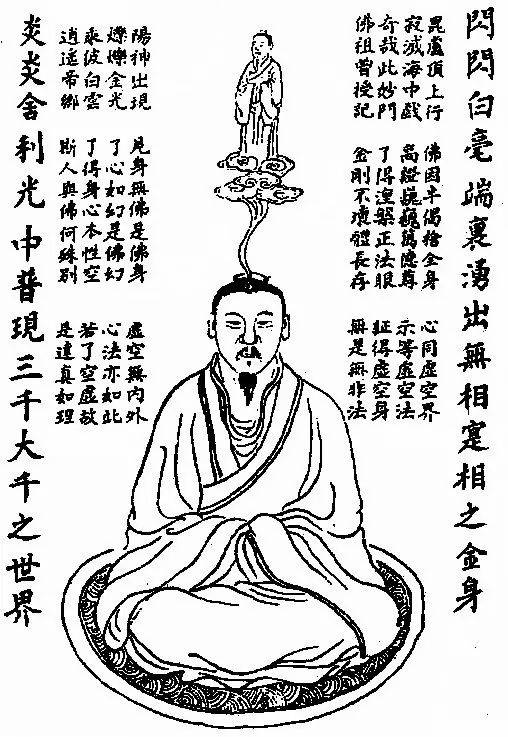 閃閃白毫端裏湧出無相寔相之金身
毘盧頂上行
寂滅海中戲
奇哉此妙門
佛祖曾授記
佛因半偈捨全身
高證巍巍萬德尊
了得涅槃正法眼
金剛不壞體長存
心同虛空界
示等虛空法
証得虛空身
無是無非法
陽神出現
爍金光
乘彼白雲
逍遙帝鄉
見身無佛是佛身
了心如幻是佛幻
了得身心本性空
斯人與佛何殊別
虛空無內外
心法亦如此
若了空虛故
是達真如理
炎炎舍利光中普現三千大千之世界